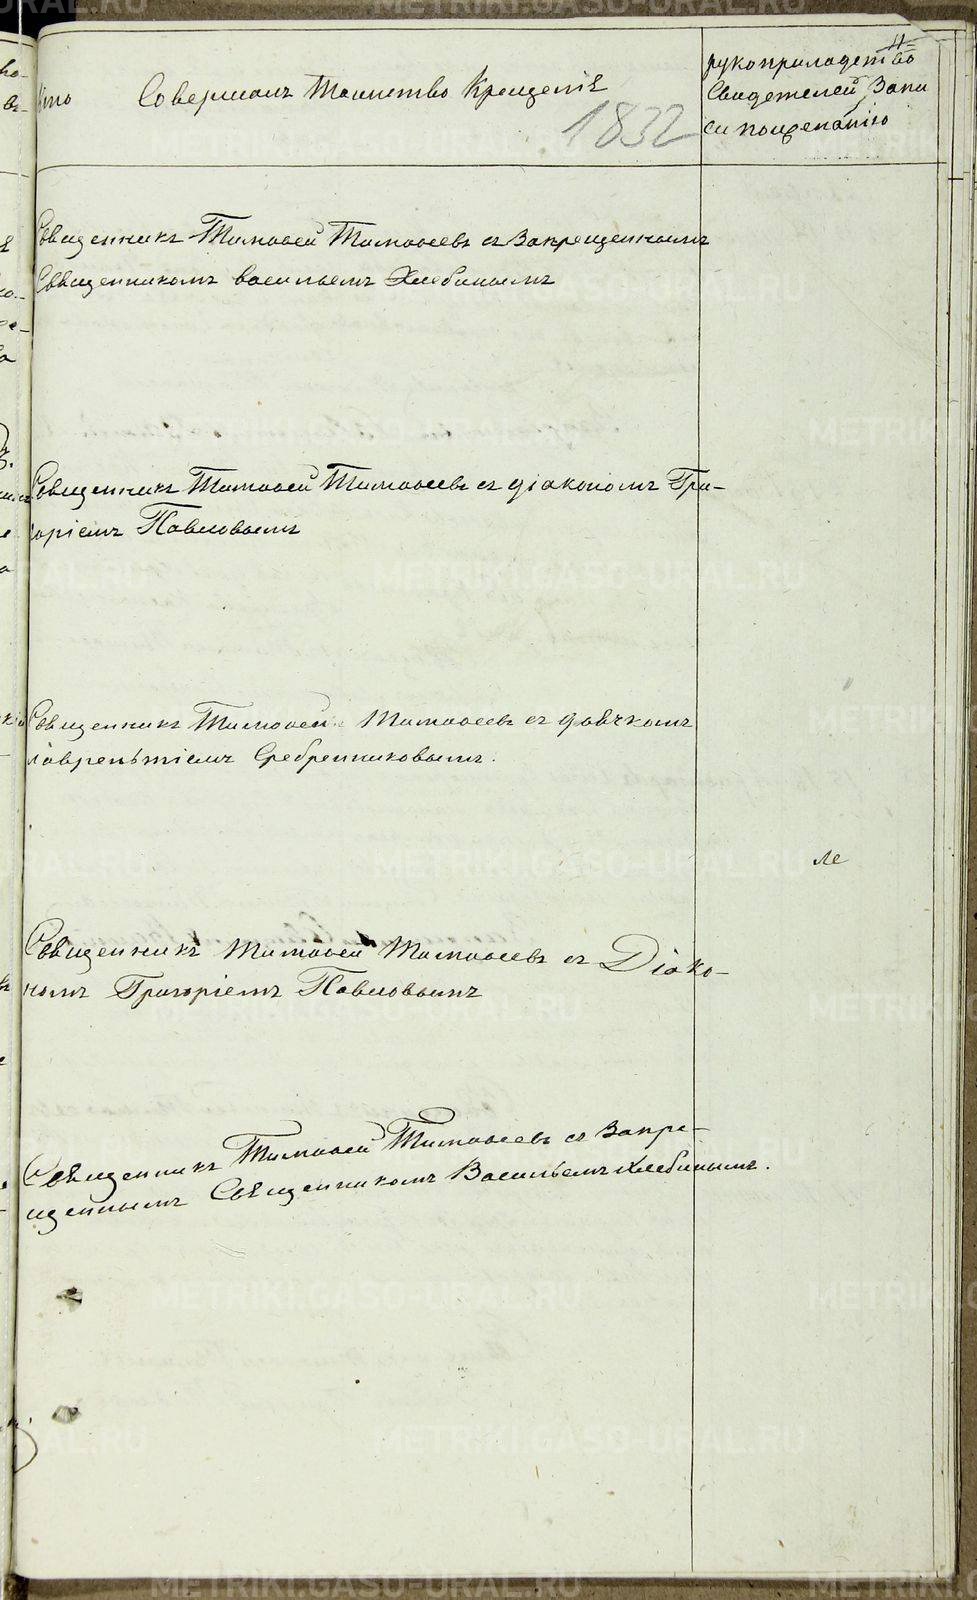 11=
Кто Совершалъ Таинство Крещенія
рукоприкладство
Свидетелей Запи
си пожеланію
1832
Священникъ Тимофей Тимофеевъ съ Запрещеннымъ
Священникомъ Васильемъ Хлебинымъ
Священникъ Тимофей Тимофеевъ съ діакономъ Гри-
горіемъ Павловымъ
Священникъ Тимофей Тимофеевъ съ дьячкомъ
лаврентіемъ Сребренниковымъ.
ле
Священникъ Тимофей Тимофеевъ съ Діако-
номъ Григоріемъ Павловымъ
Священникъ Тимофей Тимофеевъ съ Запре-
щеннымъ Священникомъ Васильемъ Хлебинымъ.
METRIKI.GASO-URAL.RU